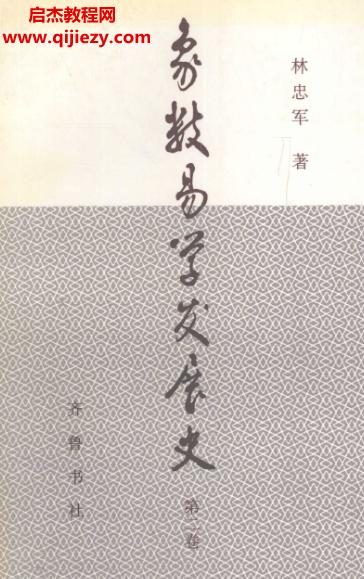 启杰教网程
www.qijiezy.com
林忠军 著
象数易学发展史
第二卷
齐鲁书社